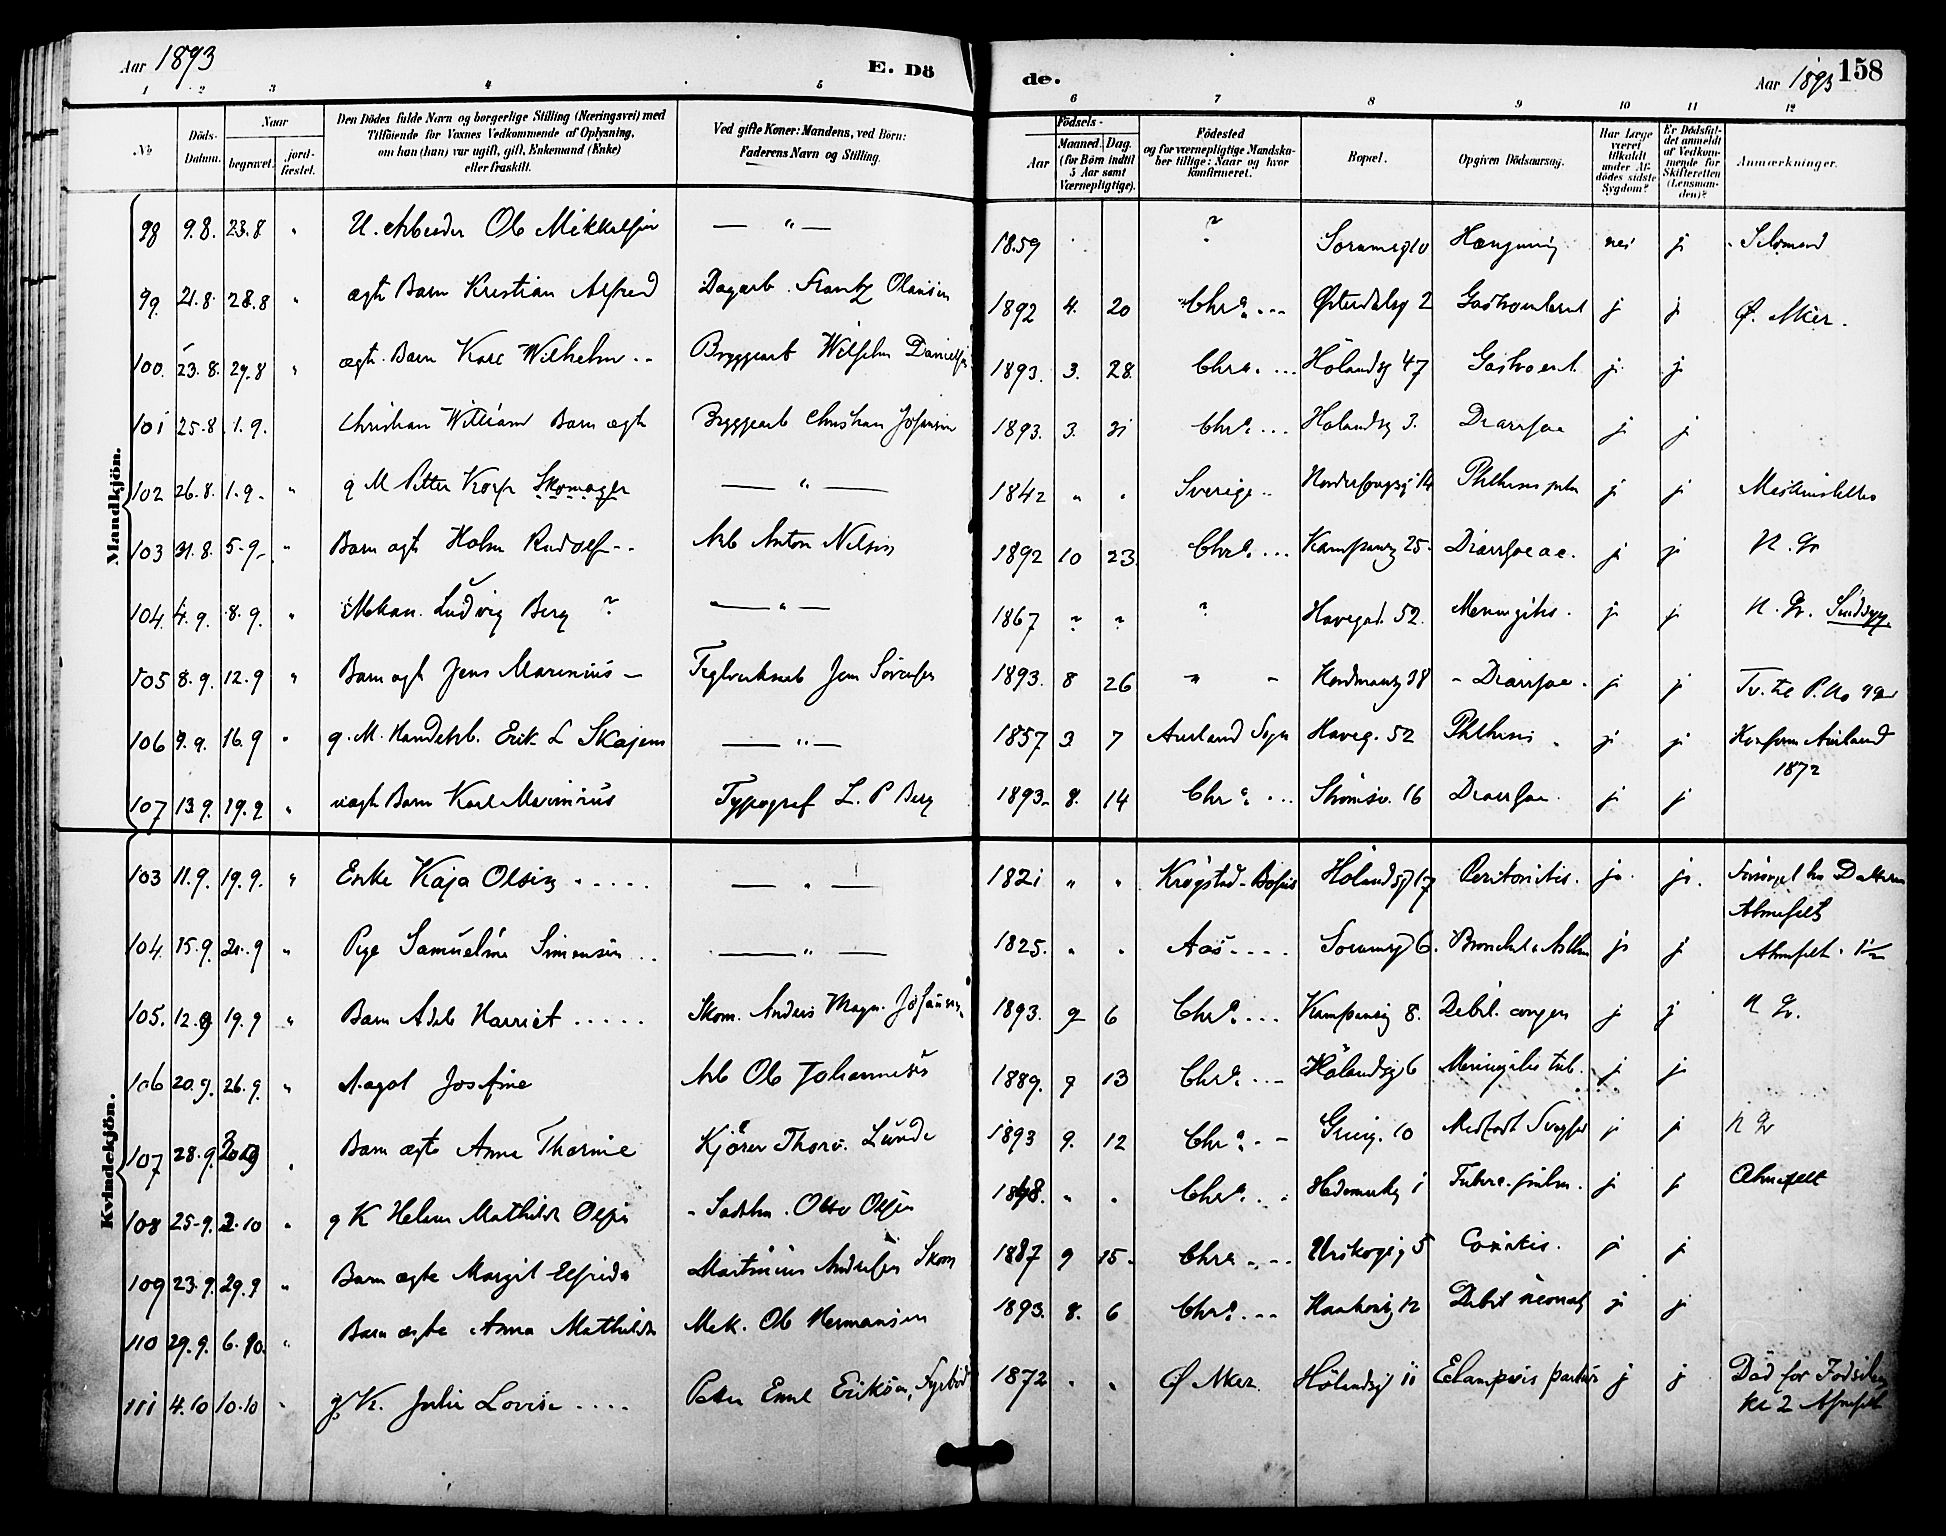 Aar 1893 E. Dö de. Aar 1893 158
1 2 3 4 5 6 7 8 9 10 11 12
No Döds-Datum. Naar begravet. jordfæstet. Den Dödes fulde Navn og borgerlige Stilling (Næringsvei) med Tilföiende for Voxnes Vedkommende af Oplysning, om han (hun) var ugift, gift, Enkemand (Enke) eller fraskilt. Ved gifte Koner: Mandens, ved Börn: Faderens Navn og Stilling. Födsels- Aar Maaned. Dag. (for Börn indtil 5 Aar samt Værnepligtige). Födested og for værnepligtige Mandskaber tillige: Naar og hvor konfirmeret. Bopæl. Opgiven Dödsaarsag. Har Læge været tilkaldt under Afdödes sidste Sygdom? Er Dödsfaldet anmeldt af Vedkommende for Skifteretten (Lensmanden)? Anmærkninger.
Mandkjön.
98 9.8. 23.8 " U. Arbeider Ole Mikkelsen — " — 1859 ? Sorumsg 10 Hængning nei j Selvmord
99. 21.8. 28.8 " ægte Barn Kristian Alfred Dagarb. Frantz Olausen 1892 4. 20 Chra. Østerdalsg 2 j j Ø. Aker.
100. 23.8. 29.8 " ægt. Barn Karl Wilhelm Bryggearb Wilhelm Danielsen 1893. 3. 28. Chra. Hölandsg 47 Gastroent. j j
101 25.8. 1.9. Christian William Barn ægte Bryggearb Christian Johansen 1893. 3. 21 Chra. Hölandsg 3. Diarrhoe j j
102 26.8. 1.9. " g M Petter Skomager — " — 1842 " " Sverige 14 Phthisis pulm j j
103 31.8. 5.9. " Barn ægte Holm Rudolf Arb Anton Nilsen 1892 10 23. Chra. Kampensg 25. Diarrhoe ac. j j N. Gr
104. 4.9. 8.9. " Mekan. Ludvig Berg ? — " — 1867 ? ? ? Havegad. 52. Meningitis. j j N. Gr. Sindsyg.
105 8.9. 12.9 " Barn ægte Jens Marinius Teglverksarb Jens Sörensen 1893. 8 26 " 38 Diarrhoe. j j Tv. til P. No
106 9.9. 16.9 " g. M. Handelsb. Erik L Skajem — " — 1857 3 7 Aurland Sogn Haveg. 52 Phthisis j j Konfirm Aurland 1872
107 13.9. 19.9 " uægte Barn Karl Marinius Typograf L. P Berg 1893 8. 14 Chra. Strömsv. 16 Diarrhoe. j j
Kvindekjön.
103 11.9. 19.9. " Enke Kaja Olsen — " — 1821 " " Krogstad Hölandsg 17 Peritonitis. ja. ja. Datteren
104. 15.9. 21.9 " Pige Samueline Simensen — " — 1825. " " Aas Sorumsg 6. Bronchit. Asthm j j
105. 12.9 19.9 " Barn Adele Harriet Skom. Anders Magn. Johansen 1893. 9 6 Chra. Kampensg 8. Debil. congen j j N Gr.
106 20.9. 26.9. " Aagot Josefine Arb Ole Johannesen 1889. 9 13 Chra. Hölandsg 6 Meningitis tub. j j
107 28.9. Barn ægte Anna Thorine Kjörer Thorv. Lunde 1893 9. 12 Chra. 10 j j N Gr
108 25.9. 2.10 " g K Helene Mathilde Olsen Olsen " " Chra. Hedemarksg 1 j j
109 23.9. 29.9 " Barn ægte Margit Elfrida Martinius Andersen Skom 1887 9 15. Chra. Urskogsg 5 Coxitis. j j
110 29.9. 6.10. " Barn ægte Anna Mathilde Mek. Ole Hermansen 1893. 8. 6 Chra. 12 Debil neonat j j
111 4.10 10.10 " g K. Julie Lovise Petter Emil Eriksen, Fyrböd 1872 " " Ø Aker. Hölandsg 11 j j Död for Födselen kl 2